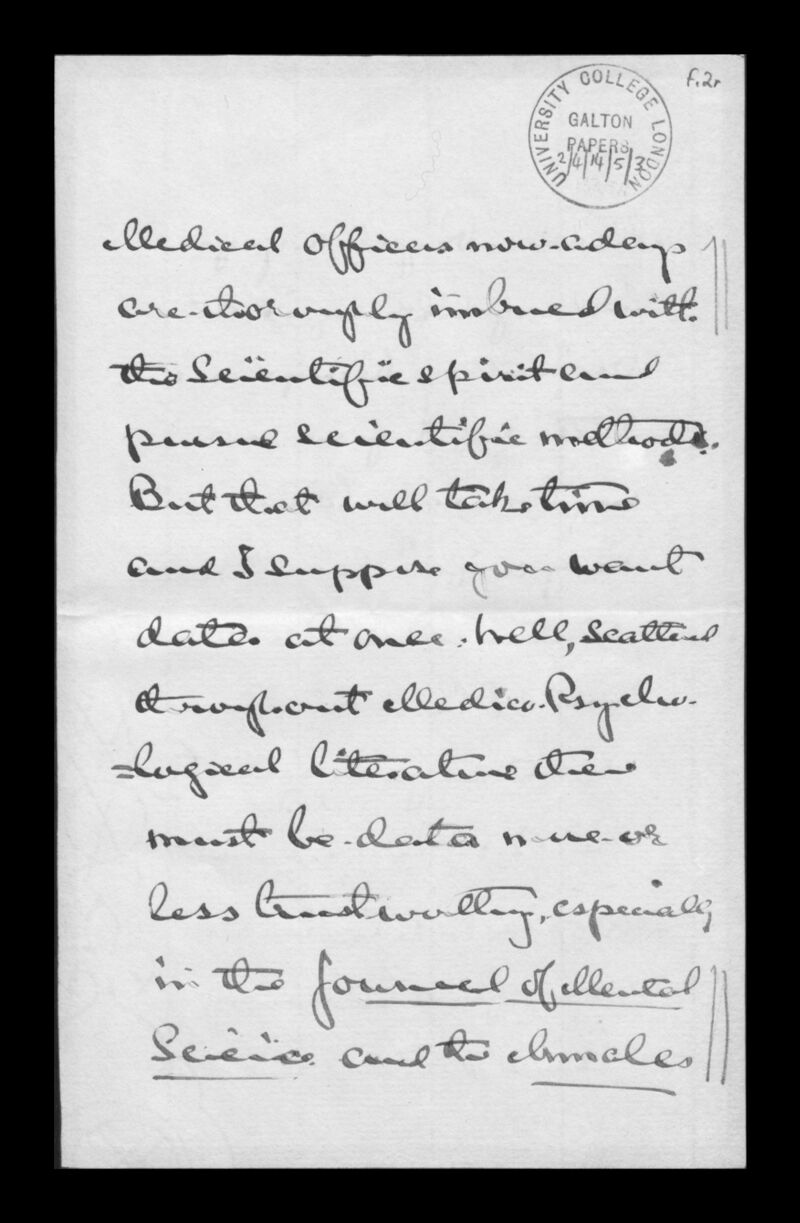 f.2r
UNIVERSITY COLLEGE LONDON
GALTON
PAPERS
2/4/14/5/3
Medical Officers now-a-days
are thoroughly imbued with
the Scientific spirit and
pursue scientific methods.
But that will take time
and I suppose you want
data at once. Well, scattered
throughout Medico-Psycho-
=logical literature there
must be data more or
less trustworthy, especially
in the Journal of Mental
Science and the Annales